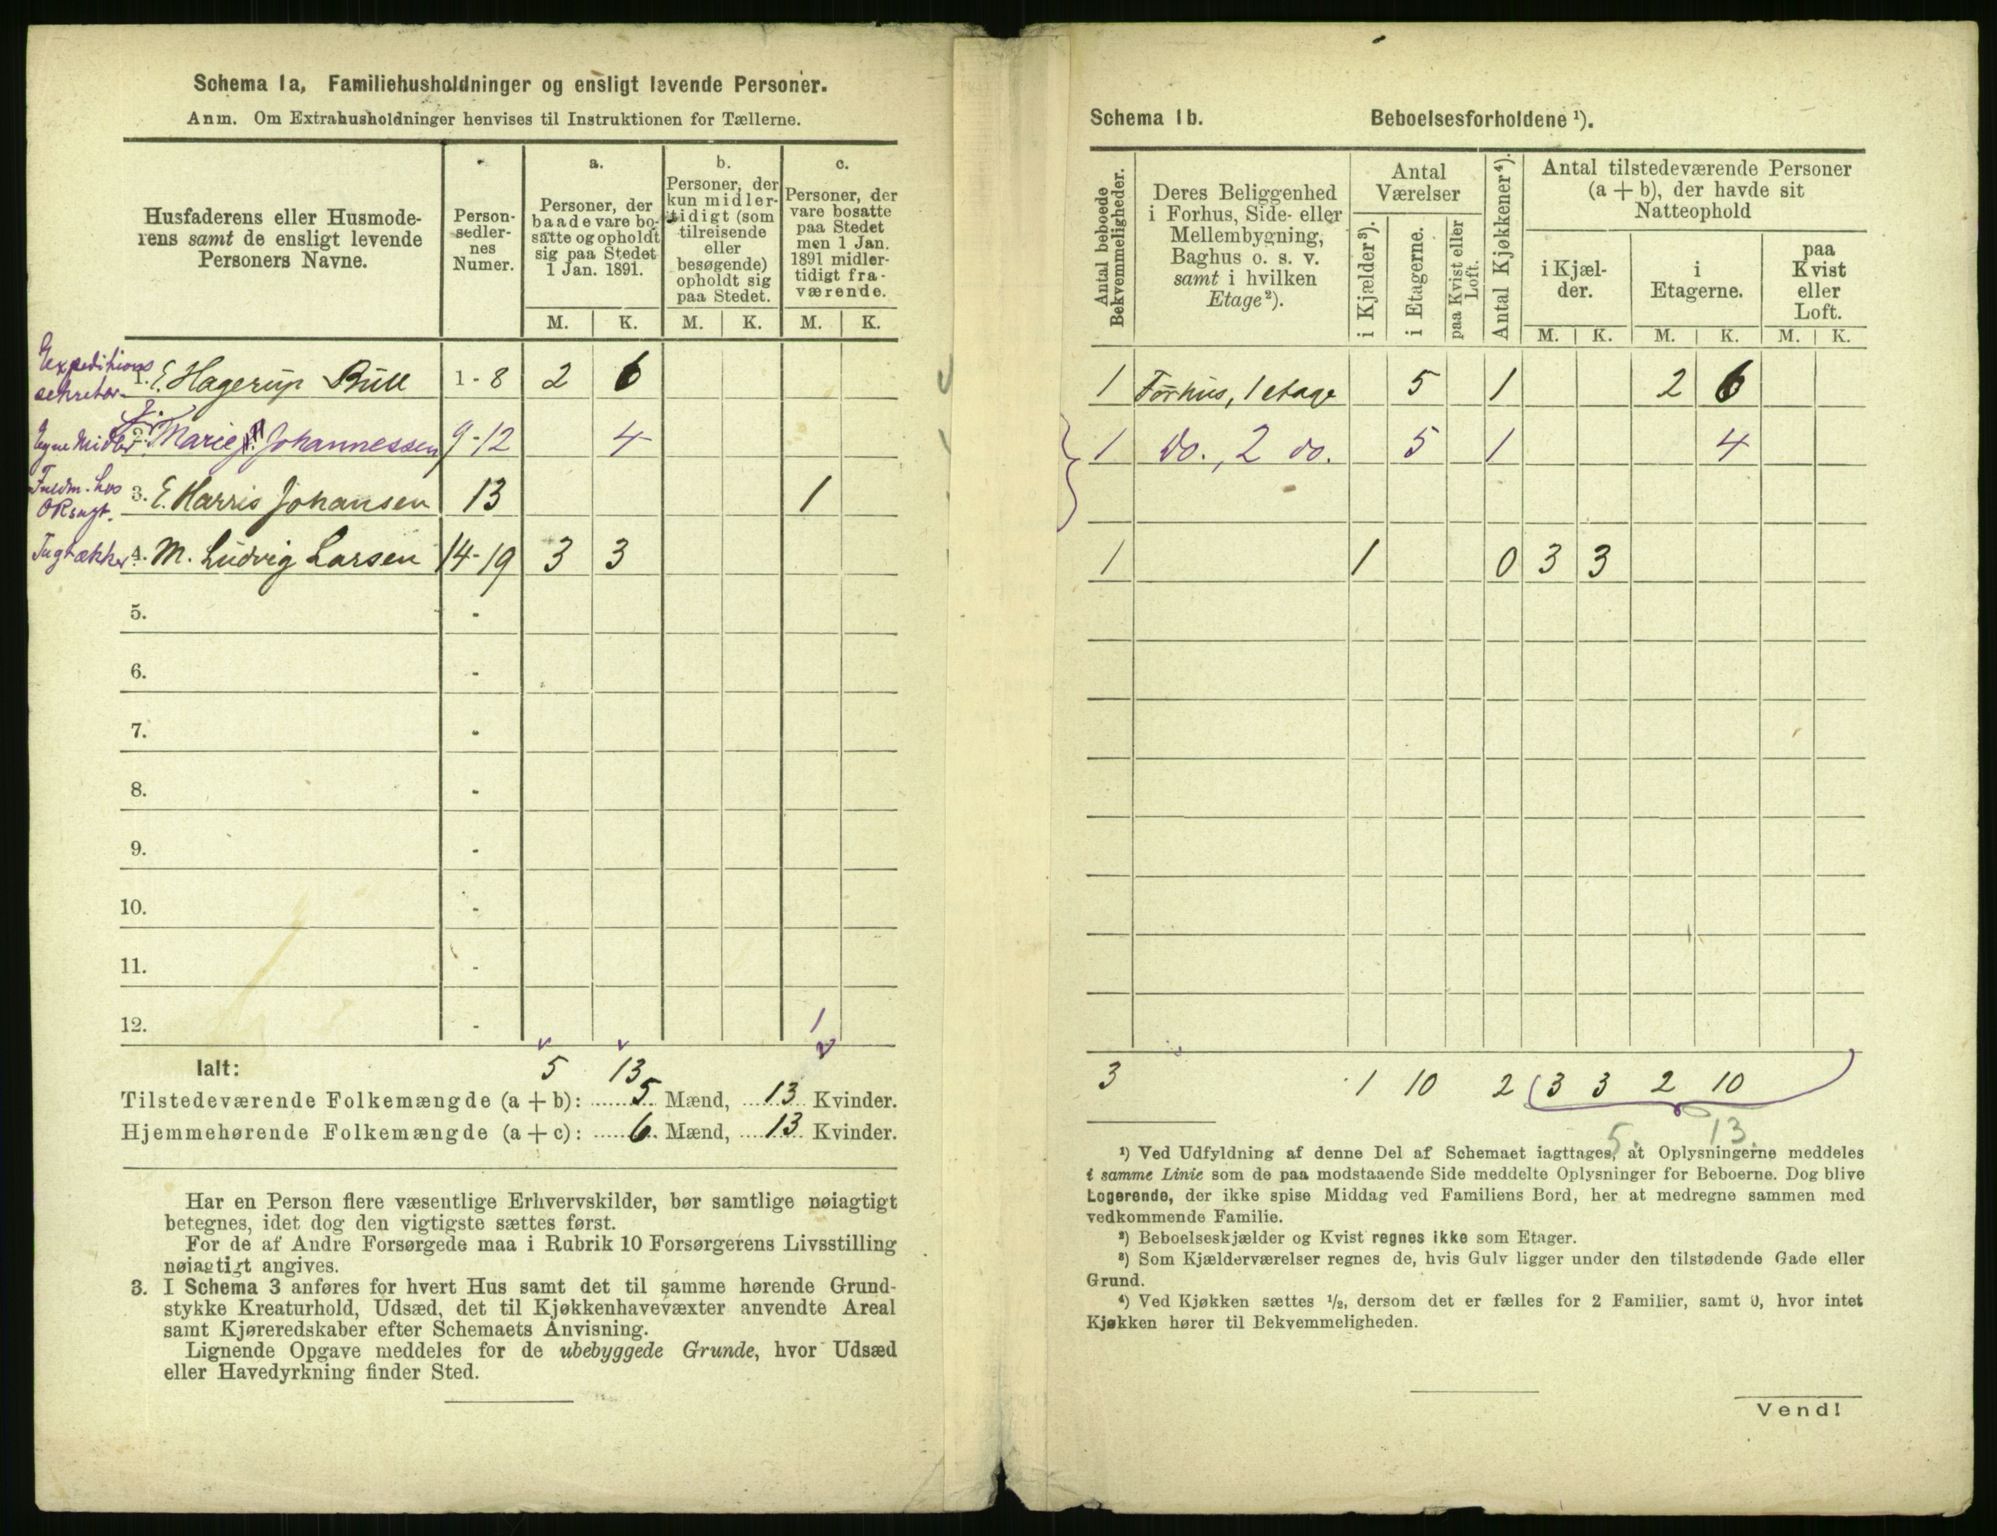 Schema 1a, Familiehusholdninger og ensligt levende Personer.
Anm. Om Extrahusholdninger henvises til Instruktionen for Tællerne.
Husfaderens eller Husmode-
rens samt de ensligt levende
Personers Navne.
Person-
sedler-
nes
Numer.
a.
Personer, der
baade vare bo-
satte og opholdt
sig paa Stedet
1 Jan. 1891.
b.
Personer, der
kun midler-
tidigt (som
tilreisende
eller
besøgende)
opholdt sig
paa Stedet.
c.
Personer, der
vare bosatte
paa Stedet
men 1 Jan.
1891 midler-
tidigt fra-
værende.
M. K. M. K. M. K.
Expeditions
sekretær
1. E. Hagerup Bull 1 - 8 2 6
Egne Midler 2. Marie J. Johannessen 9-12 4
Fuldm. hos
ORsagf.
3. E. Harris Johansen 13 1
Tagtækker 4. M. Ludvig Larsen 14-19 3 3
5. -
6. -
7. -
8. -
9. -
10. -
11. -
12. - 1
Ialt: 5 13
Tilstedeværende Folkemængde (a + b): 5 Mænd, 13 Kvinder.
Hjemmehørende Folkemængde (a + c): 6 Mænd, 13 Kvinder.
Har en Person flere væsentlige Erhvervskilder, bør samtlige nøiagtigt
betegnes, idet dog den vigtigste sættes først.
For de af Andre Forsørgede maa i Rubrik 10 Forsørgerens Livsstilling
nøiagtigt angives.
3. I Schema 3 anføres for hvert Hus samt det til samme hørende Grund-
stykke Kreaturhold, Udsæd, det til Kjøkkenhavevæxter anvendte Areal
samt Kjøreredskaber efter Schemaets Anvisning.
Lignende Opgave meddeles for de ubebyggede Grunde, hvor Udsæd
eller Havedyrkning finder Sted.
Schema 1b. Beboelsesforholdene ¹).
Antal beboede
Bekvemmeligheder.
Deres Beliggenhed
i Forhus, Side- eller
Mellembygning,
Baghus o. s. v.
samt i hvilken
Etage²).
Antal
Værelser
i Kjælder³).
i Etagerne.
paa Kvist eller
Loft.
Antal Kjøkkener⁴).
Antal tilstedeværende Personer
(a + b), der havde sit
Natteophold
i Kjæl-
der.
i
Etagerne.
paa
Kvist
eller
Loft.
M. K. M. K. M. K.
1 Forhus, 1 etage 5 1 2 6
1 do., 2 do. 5 1 4
1 1 0 3 3
3 1 10 2 3 3 2 10
5 13
¹) Ved Udfyldning af denne Del af Schemaet iagttages, at Oplysningerne meddeles
i samme Linie som de paa modstaaende Side meddelte Oplysninger for Beboerne. Dog blive
Logerende, der ikke spise Middag ved Familiens Bord, her at medregne sammen med
vedkommende Familie.
²) Beboelseskjælder og Kvist regnes ikke som Etager.
³) Som Kjælderværelser regnes de, hvis Gulv ligger under den tilstødende Gade eller
Grund.
⁴) Ved Kjøkken sættes ½, dersom det er fælles for 2 Familier, samt 0, hvor intet
Kjøkken hører til Bekvemmeligheden.
Vend!